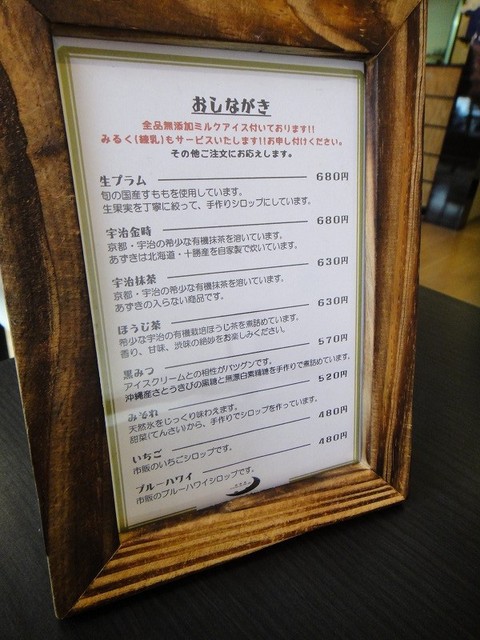 おしながき
全品無添加ミルクアイス付いております!!
みるく(練乳)もサービスいたします!!お申し付けください。
その他ご注文にお応えします。
生プラム 680円
旬の国産すももを使用しています。
生果実を丁寧に絞って、手作りシロップにしています。
宇治金時 680円
京都・宇治の希少な有機抹茶を溶いています。
あずきは北海道・十勝産を自家製で炊いています。
宇治抹茶 630円
京都・宇治の希少な有機抹茶を溶いています。
あずきの入らない商品です。
ほうじ茶 630円
希少な宇治の有機栽培ほうじ茶を煮詰めています。
香り、甘味、渋味の絶妙をお楽しみください。
黒みつ 570円
アイスクリームとの相性がバツグンです。
沖縄産さとうきびの黒糖と無漂白素精糖を手作りで煮詰めています。
みぞれ 520円
天然氷をじっくり味わえます。
甜菜(てんさい)から、手作りでシロップを作っています。
いちご 480円
市販のいちごシロップです。
ブルーハワイ 480円
市販のブルーハワイシロップです。